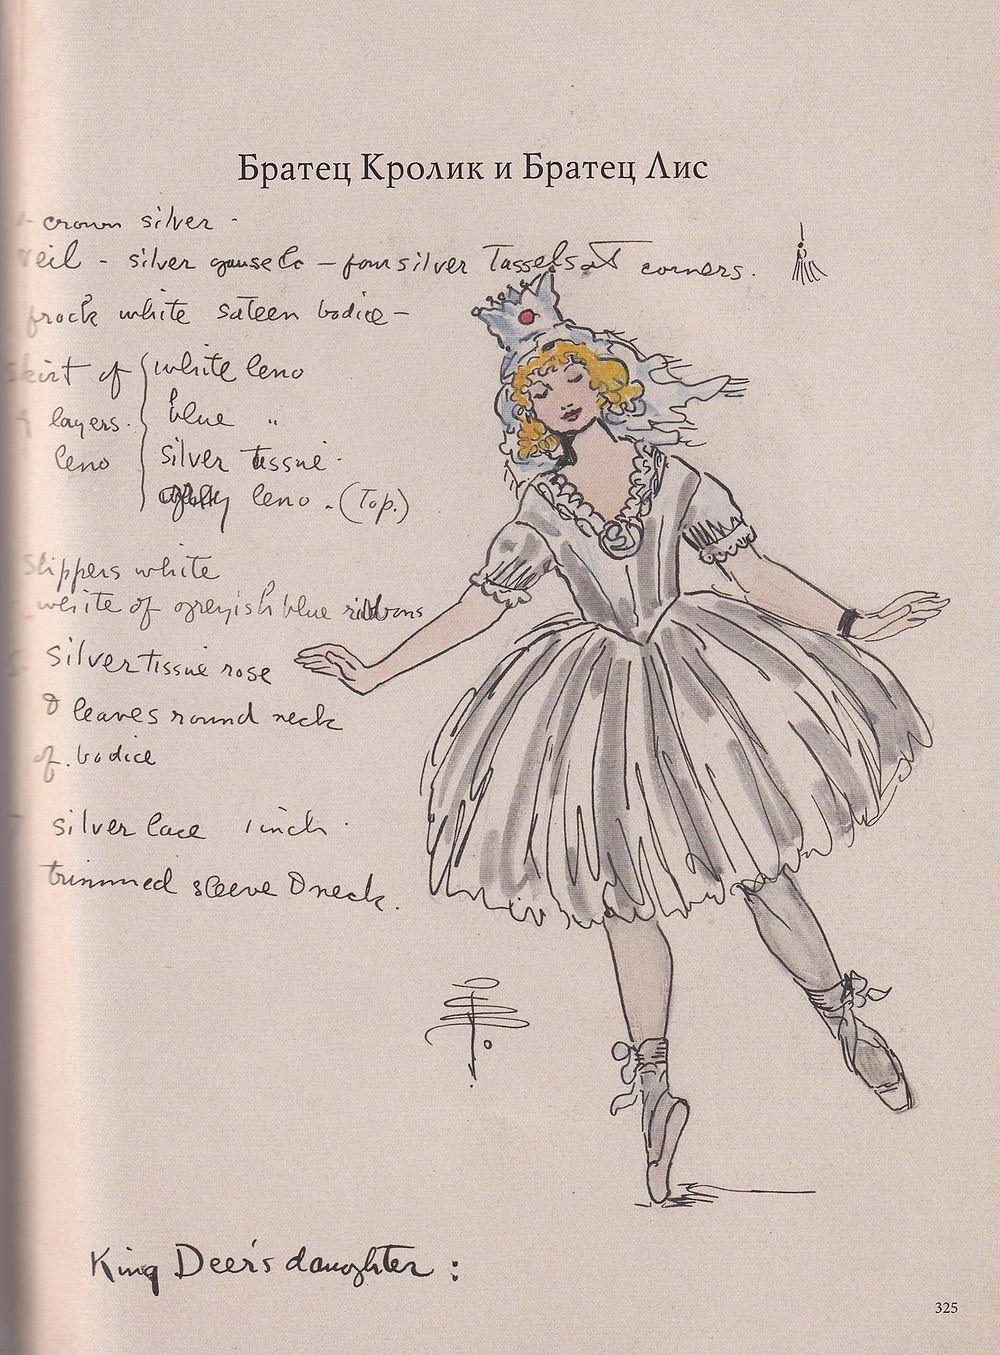 Братец Кролик и Братец Лис
crown silver -
veil - silver - four silver Tassels at corners.
frock white sateen bodice -
skirt of { white leno
layers. blue "
leno silver tissue.
leno. (Top.)
slippers white
white of greyish blue ribbons
silver tissue rose
& leaves round neck
of bodice
silver lace 1 inch.
trimmed sleeve & neck.
King Deer's daughter :
325